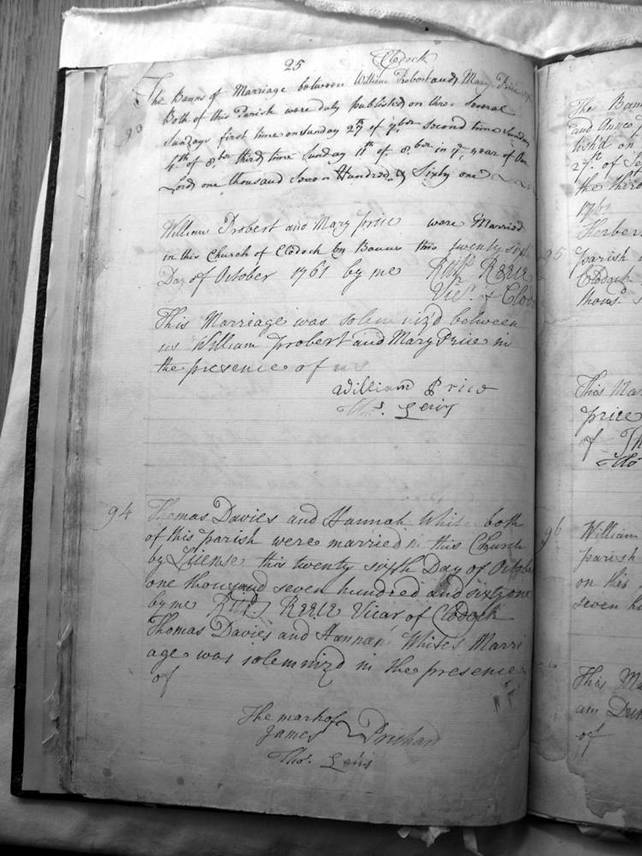 25 Clodock
The Banns of Marriage between William Probert and Mary Price
Both of this Parish were duly published on three several
93 Sundays first time on Sunday 27th of 7ber second time Sunday
4th of 8ber third time Sunday 11th of 8ber in ye year of the
Lord one thousand Seven Hundred & Sixty one
William Probert and Mary Price were Married
in this Church of Clodock by Banns this twenty sixth
Day of October 1761 by me
Vic. of Clod
This Marriage was solemniz'd between
us William Probert and Mary Price in
the presence of us
William Price
Thos. Lewis
94 Thomas Davies and Hannah White both
of this parish were married in this Church
by License this twenty sixth Day of Octobe
one thousand seven hundred and sixty one
by me Vicar of Clodock
Thomas Davies and Hannah White's Marri
age was solemnizd in the presence
of
The mark of
James Prichard
Thos. Lewis
The Bann
and Ann
lish'd on
27th of Se
the thir
1761
Herber
95 parish
Clodock
thous
This Mar
price
of Th
Tho
96 William
parish
on this
seven h
This Ma
am Dun
of